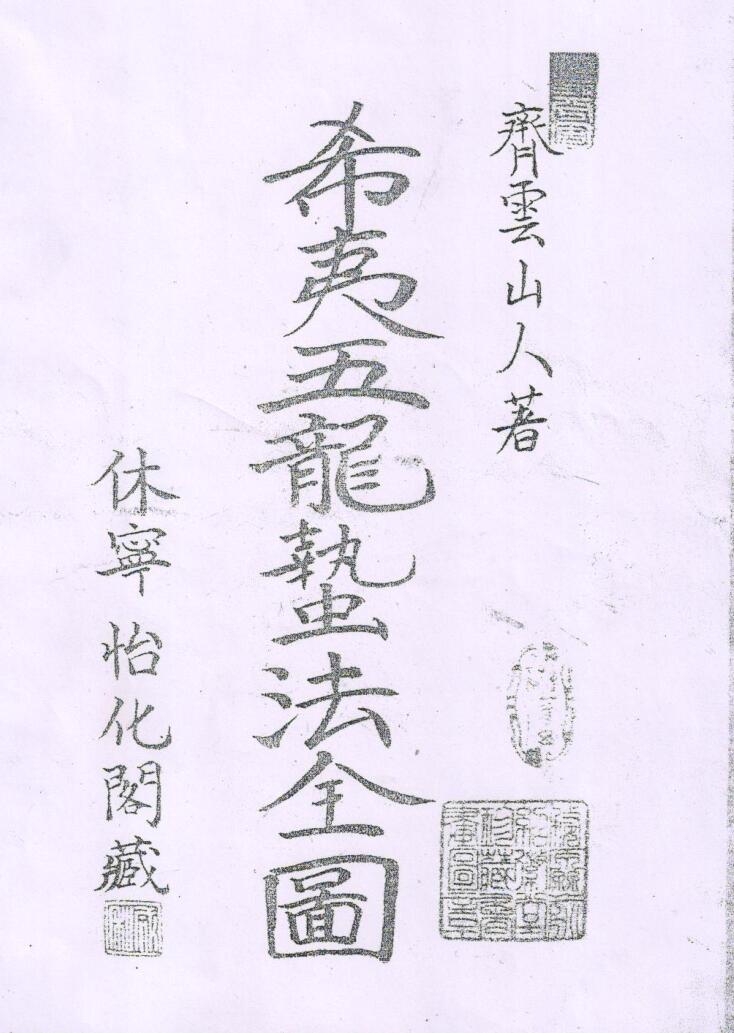 齊雲山人著
希夷五龍蟄法全圖
休寧怡化閣藏